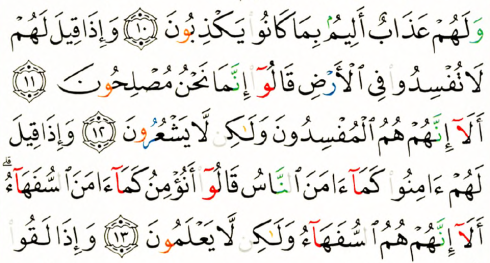 وَلَهُمْ عَذَابٌ أَلِيمٌۢ بِمَا كَانُوا۟ يَكْذِبُونَ ١٠ وَإِذَا قِيلَ لَهُمْ
لَا تُفْسِدُوا۟ فِى ٱلْأَرْضِ قَالُوٓا۟ إِنَّمَا نَحْنُ مُصْلِحُونَ ١١
أَلَآ إِنَّهُمْ هُمُ ٱلْمُفْسِدُونَ وَلَـٰكِن لَّا يَشْعُرُونَ ١٢ وَإِذَا قِيلَ
لَهُمْ ءَامِنُوا۟ كَمَآ ءَامَنَ ٱلنَّاسُ قَالُوٓا۟ أَنُؤْمِنُ كَمَآ ءَامَنَ ٱلسُّفَهَآءُ ۗ
أَلَآ إِنَّهُمْ هُمُ ٱلسُّفَهَآءُ وَلَـٰكِن لَّا يَعْلَمُونَ ١٣ وَإِذَا لَقُوا۟